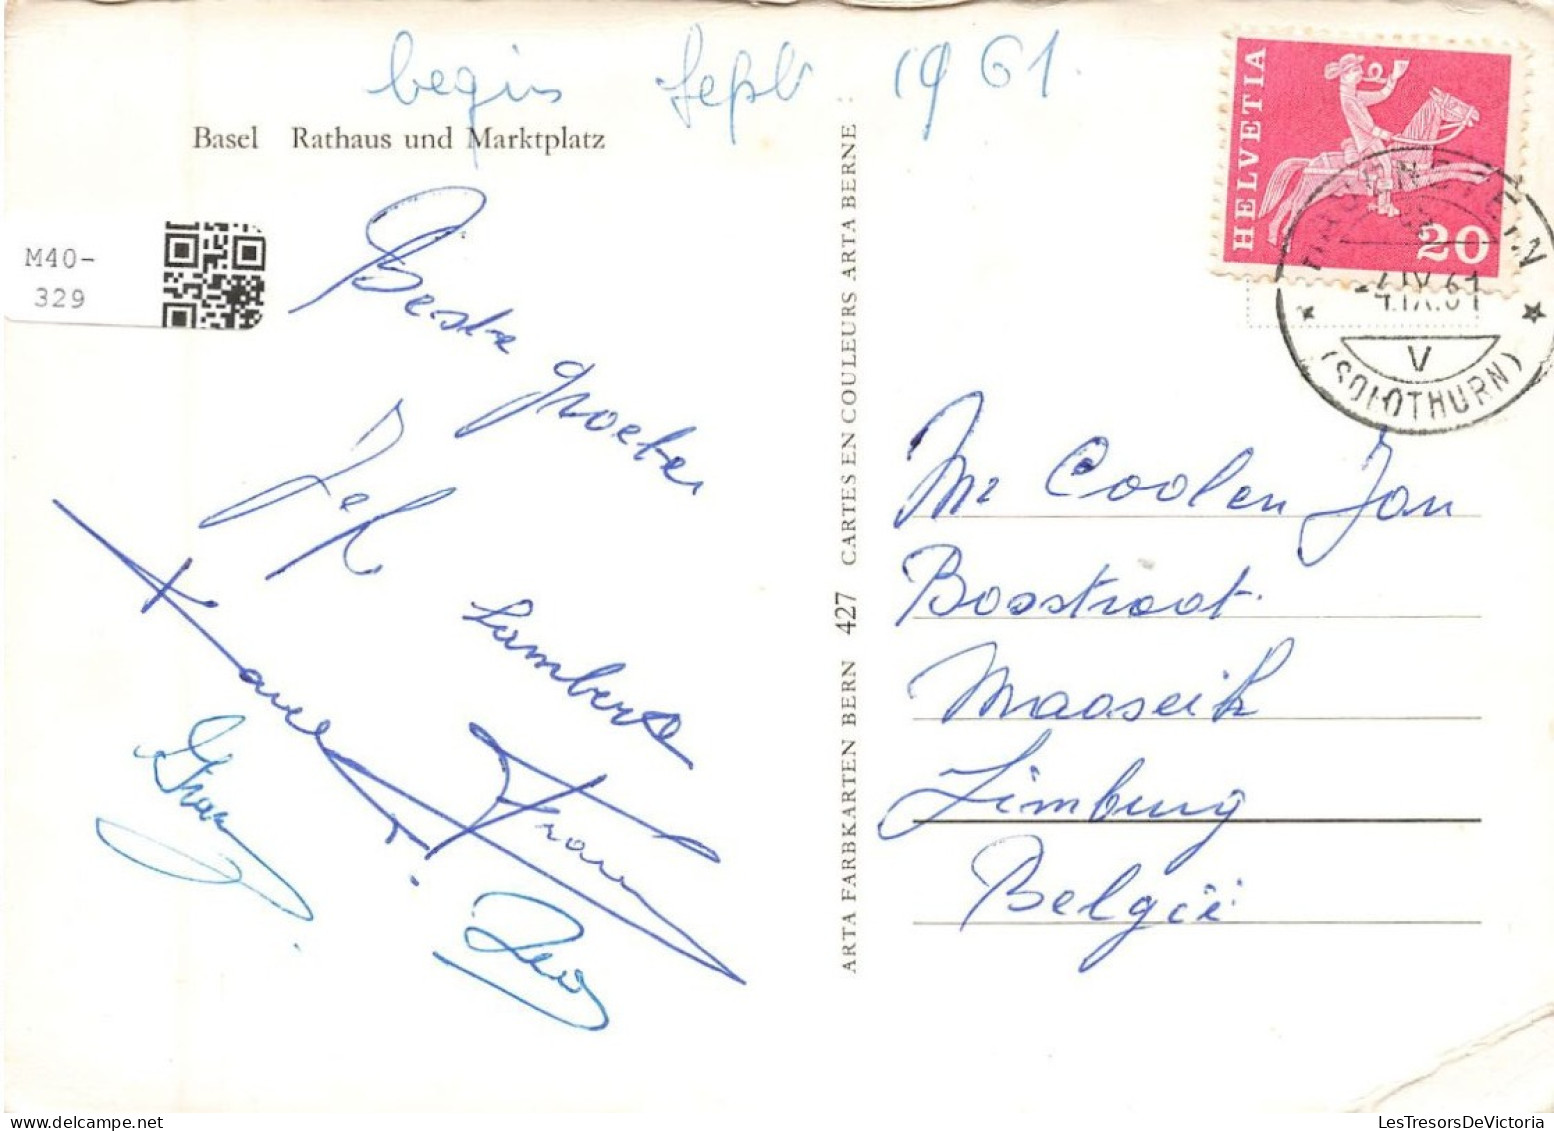 begin Sept 1961.
Basel Rathaus und Marktplatz
M40-
329
Beste groeten
Jef
Lamberts
Karel
Frans
Leo
ARTA FARBKARTEN BERN 427 CARTES EN COULEURS ARTA BERNE
HELVETIA
20
-4.IX.61
V
(SOLOTHURN)
Mr Coolen Jan
Bosstraat.
Maaseik
Limburg
België
LesTresorsDeVictoria.com